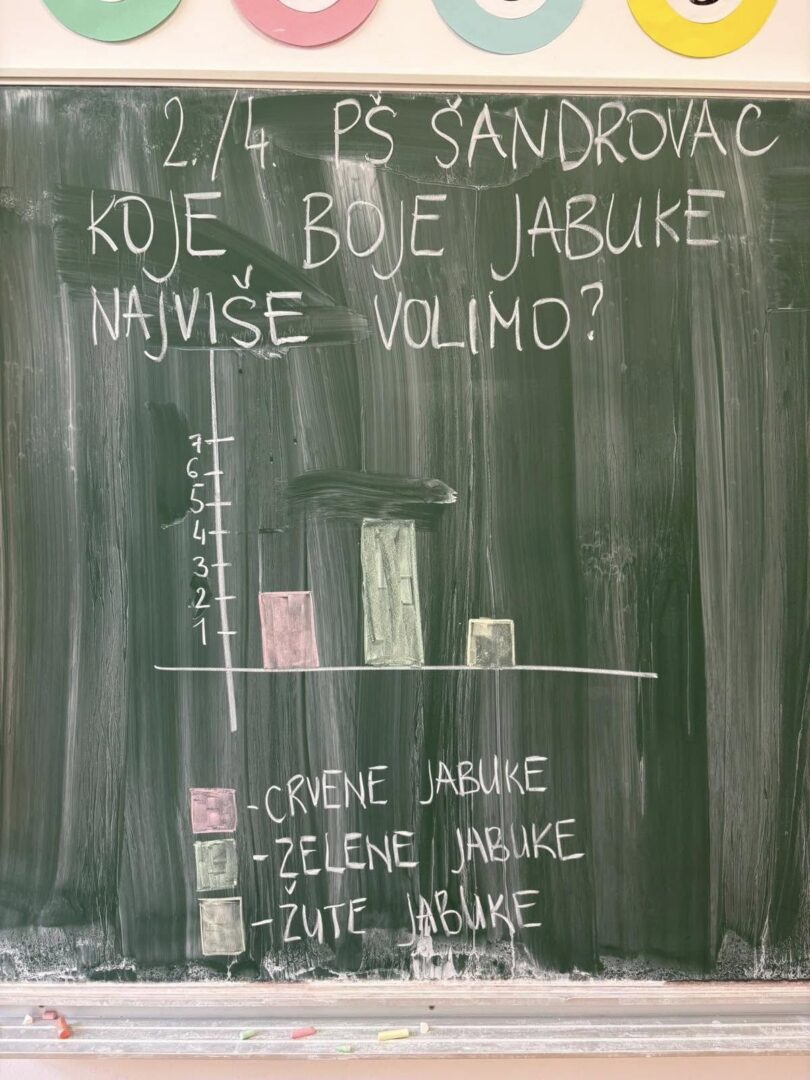 2./4. PŠ ŠANDROVAC
KOJE BOJE JABUKE
NAJVIŠE VOLIMO?
7
6
5
4
3
2
1
-CRVENE JABUKE
-ZELENE JABUKE
-ŽUTE JABUKE